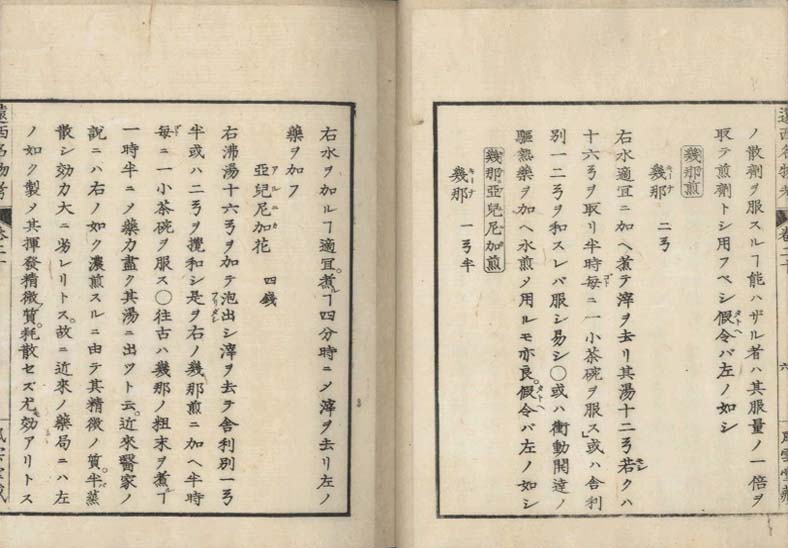 遠西名物考 卷二十 六 風雲堂藏
ノ散劑ヲ服スルヿ能ハザル者ハ其服量ノ一倍ヲ
取テ煎劑トシ用フベシ假令バ左ノ如シ
幾那煎
幾那 二ヲ
右水適宜ニ加ヘ煮テ滓ヲ去リ其湯十二ヲ若クハ
十六ヲヲ取リ半時每ニ一小茶碗ヲ服ス」或ハ舎利
別一二ヲヲ和スレバ服シ易シ〇或ハ衝動開達ノ
驅熱藥ヲ加ヘ水煎メ用ルモ亦良。假令バ左ノ如シ
幾那亞兒尼加煎
幾那 一ヲ半
右水ヲ加ルヿ適宜。煮ルヿ四分時ニメ滓ヲ去リ左ノ
藥ヲ加フ
亞兒尼加花 四錢
右沸湯十六ヲヲ加テ泡出シ滓ヲ去テ舎利別一ヲ
半或ハ二ヲヲ攪和シ是ヲ右ノ幾那煎ニ加ヘ半時
每ニ一小茶碗ヲ服ス〇往古ハ幾那ノ粗末ヲ煮ルヿ
一時半ニメ藥力盡ク其湯ニ出ツト云。近來醫家ノ
說ニハ右ノ如ク濃煎スルニ由テ其精微ノ質。半蒸
散シ効力大ニ劣レリトス。故ニ近來ノ藥局ニハ左
ノ如ク製メ其揮發精微質。耗散セズ尤効アリトス
遠西名物考 卷二十